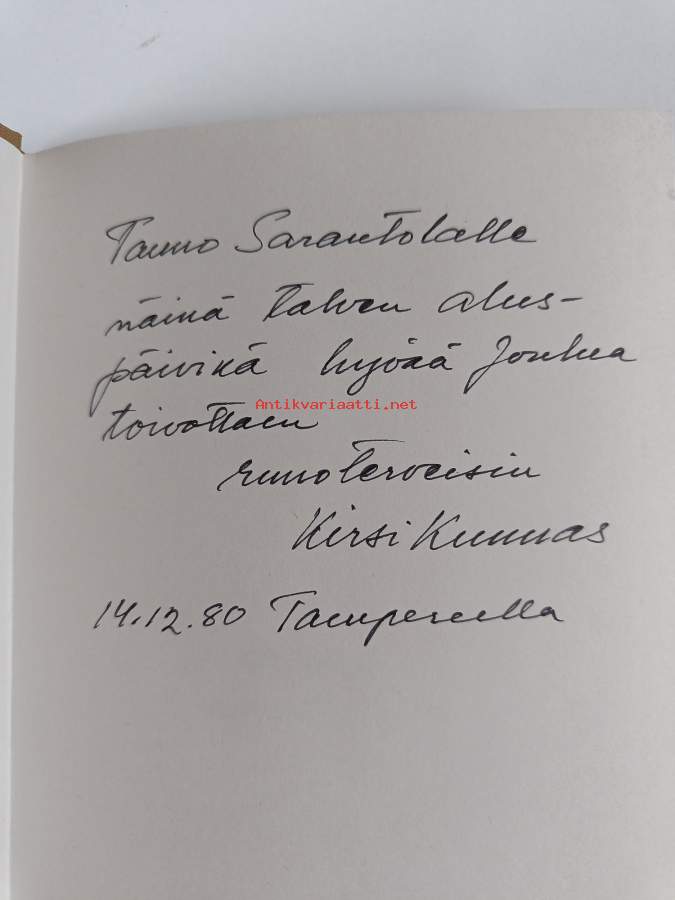 Tauno Sarantolalle
näinä talven alus-
päivinä hyvää Joulua
Antikvariaatti.net
toivottaen
runoterveisin
Kirsi Kunnas
14.12.80 Tampereella